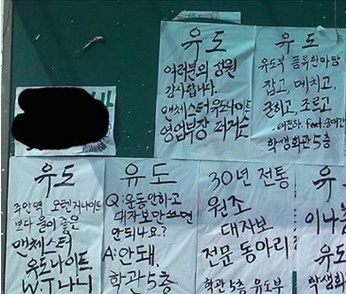 유도
여러분의 성원
감사합니다.
맨체스터 유도나이트
영업부장 퍼거슨
유도
유도부 풍류한마당
잡고, 메치고,
굳히고, 조르고
feat.
학생회관 5층
유도
주안역 오렌지나이트
보다 물이 좋은
맨체스터
유도나이트
W.T 나니
유도
Q: 운동안하고
대자보만 쓰면
안되나요?
A: 안돼.
학관 5층
30년 전통
원조
대자보
전문 동아리
학관 5층 유도부
유
이나
유도
학생회